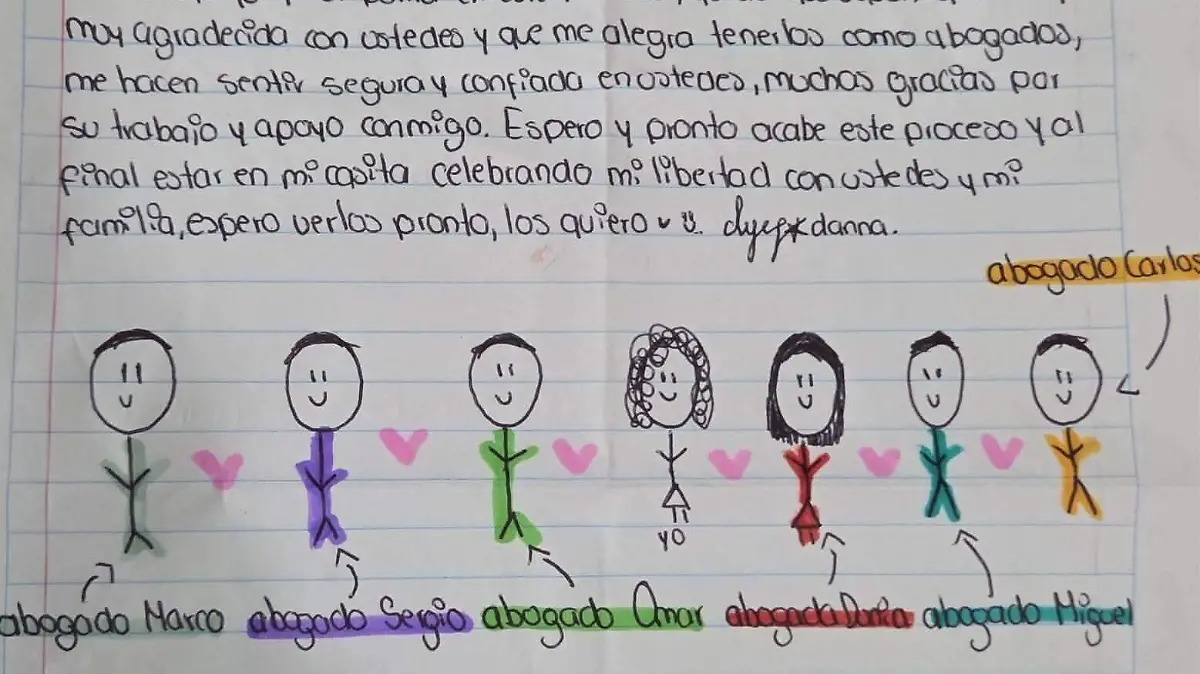 muy agradecida con ustedes y que me alegra tenerlos como abogados,
me hacen sentir segura y confiada en ustedes, muchas gracias por
su trabajo y apoyo conmigo. Espero y pronto acabe este proceso y al
final estar en mi casita celebrando mi libertad con ustedes y mi
familia, espero verlos pronto, los quiero danna.
abogado Carlos
yo
abogado Marco abogado Sergio abogado Omar abogada abogado Miguel